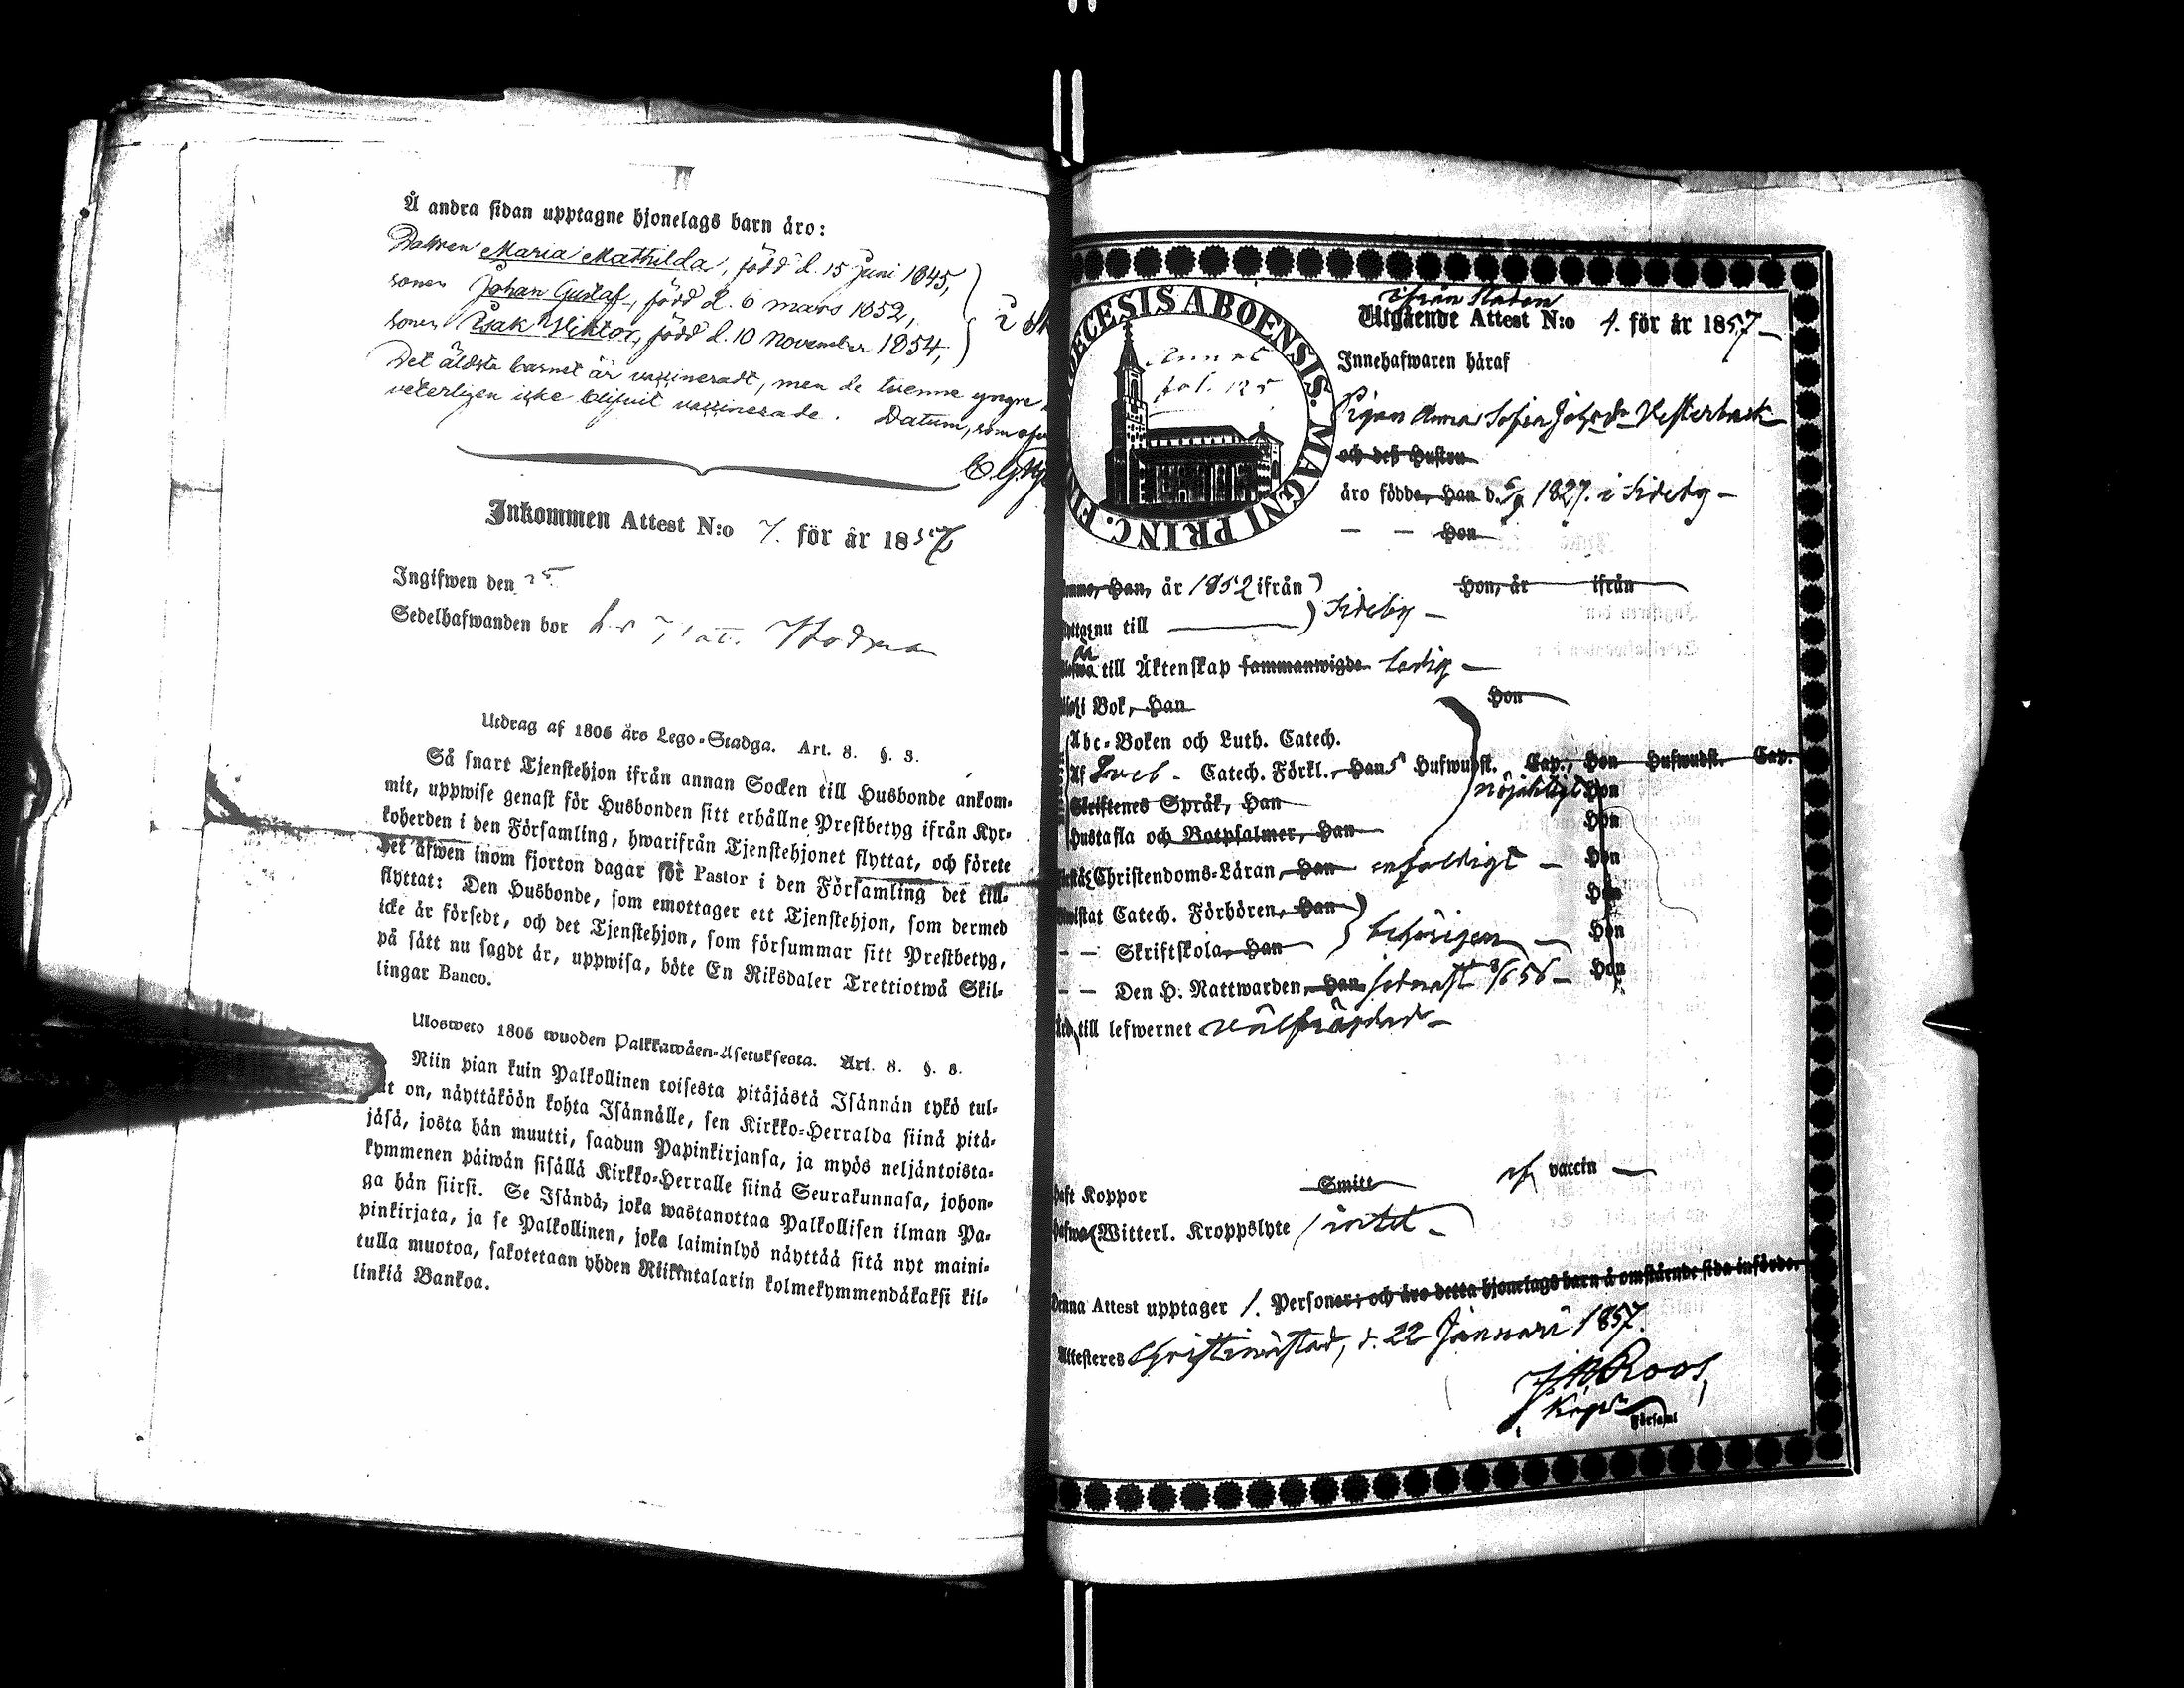 Å andra sidan upptagne hjonelags barn äro:
Dottren Maria Mathilda, född d. 15 Juni 1845,
sonen Johan Gustaf, född d. 6 mars 1852,
sonen Isak Viktor, född d. 10 November 1854,
Det äldsta barnet är vaxineradt, men de tvenne yngre
veterligen icke blifvit vaxinerade. Datum, som ofv
Inkommen Attest N:o 7. för år 1857
Ingifwen den 25
Sedelhafwanden bor
Utdrag af 1805 års Lego-Stadga. Art. 8. §. 3.
Så snart Tjenstehjon ifrån annan Socken till Husbonde ankom-
mit, uppwise genast för Husbonden sitt erhållne Prestbetyg ifrån Kyr-
koherden i den Församling, hwarifrån Tjenstehjonet flyttat, och förete
det äfwen inom fjorton dagar för Pastor i den Församling det till-
flyttat: Den Husbonde, som emottager ett Tjenstehjon, som dermed
icke är försedt, och det Tjenstehjon, som försummar sitt Prestbetyg,
på sätt nu sagdt är, uppwisa, böte En Riksdaler Trettiotwå Skil-
lingar Banco.
Ulosweto 1805 wuoden Palkkawäen-Asetuksesta. Art. 8. §. 3.
Niin pian kuin Palkollinen toisesta pitäjästä Isännän tykö tul-
ut on, näyttäköön kohta Isännälle, sen Kirkko-Herralda siinä pitä-
jäsä, josta hän muutti, saadun Papinkirjansa, ja myös neljäntoista-
kymmenen päiwän sisällä Kirkko-Herralle siinä Seurakunnasa, johon-
ga hän siirsi. Se Isändä, joka wastanottaa Palkollisen ilman Pa-
pinkirjata, ja se Palkollinen, joka laiminlyö näyttää sitä nyt maini-
tulla muotoa, sakotetaan yhden Riikintalarin kolmekymmendäkaksi kil-
linkiä Bankoa.
DIOECESIS ABOENSIS. MAGNI PRINC. FIN
fol. 125
ifrån Staden
Utgående Attest N:o 4. för år 1857
Innehafwaren häraf
Pigan Anna Sofia Johsdr Vesterback
och deß Hustru
äro födde, Han d. 5/9 1827. i Sideby
— — Hon
Han, år 1852 ifrån Hon, år ifrån
nu till Sideby
är
till Äktenskap sammanwigde ledig
i Bok, Han Hon
Abc-Boken och Luth. Catech.
Af Sveb. Catech. Förkl., Han 5 Hufwudst. Cap., Hon Hufwudst. Cap.
Skriftenes Språk, Han nöjaktigt Hon
Hustafla och Botpsalmer, Han Hon
Christendoms-Läran, Han enfaldigt Hon
Catech. Förhören, Han Hon
— — Skriftskola, Han behörigen Hon
— — Den H. Nattwarden, Han sednast 8/6 56 Hon
till lefwernet välfräjdad
haft Koppor Smitt af vaccin
hafwa Witterl. Kroppslyte intet
Denna Attest upptager 1. Personer; och äro detta hjonelags barn å omstående sida införde.
Attesteres Christinæstad, d. 22 Januari 1857.
Roos
Församl